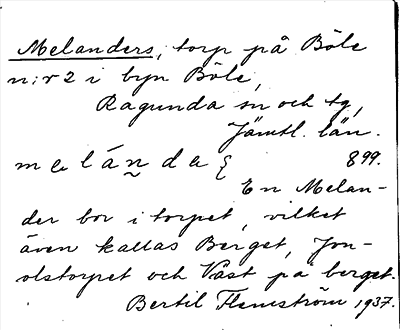 Melanders, torp på Böle
n:r 2 i byn Böle,
Ragunda sn och tg,
Jämtl. län.
melándeʃ 899.
En Melan-
der bor i torpet, vilket
även kallas Berget, Jon-
olstorpet och Väst på berget.
Bertil Flemström 1937.